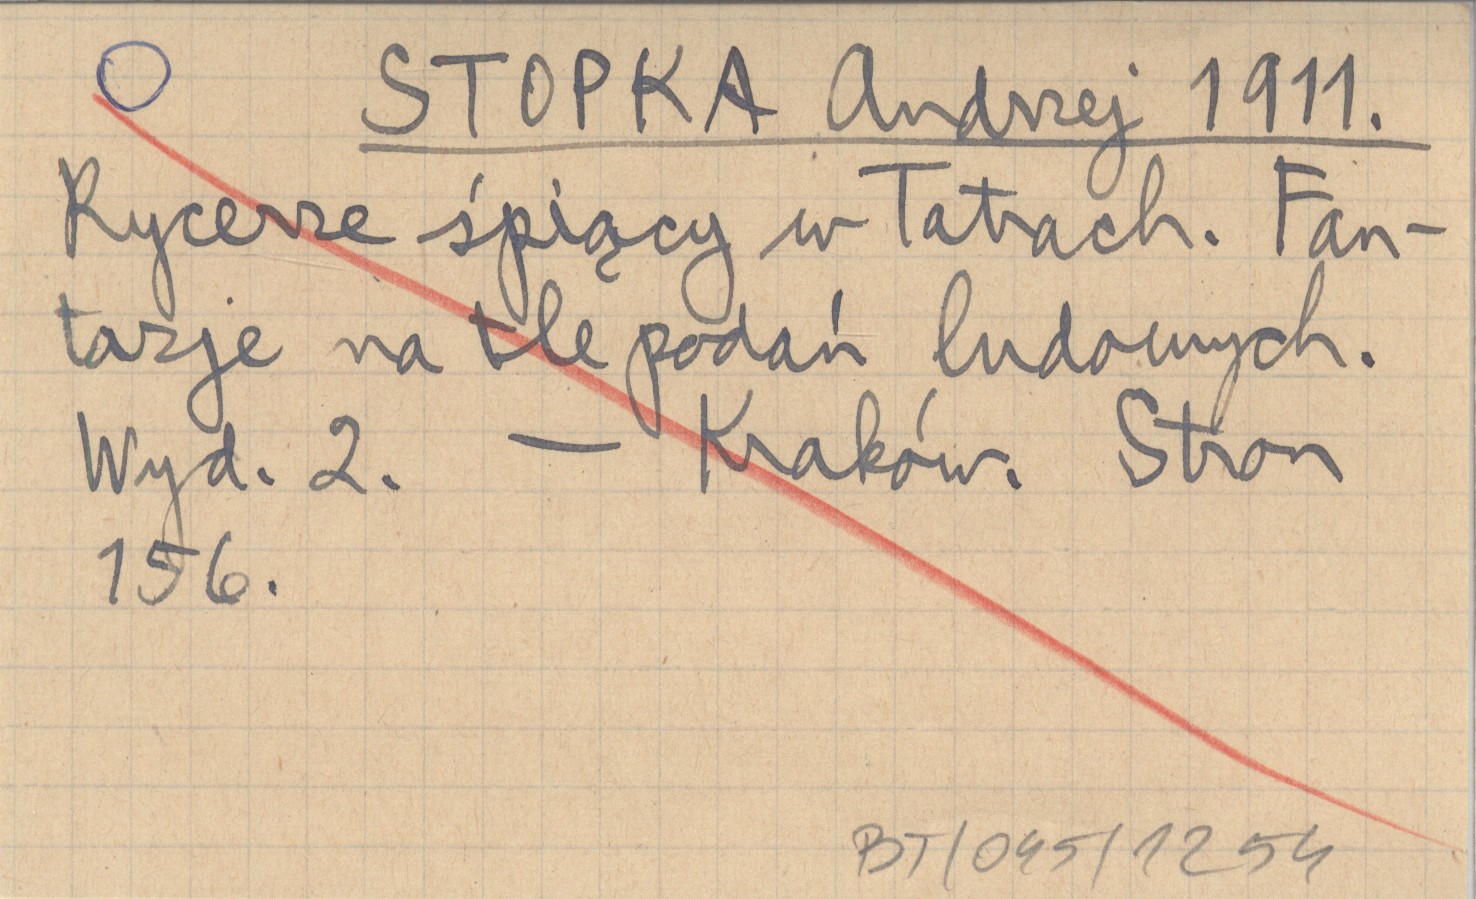 STOPKA Andrzej 1911.
Rycerze śpiący w Tatrach. Fan-
tazje na tle podań ludowych.
Wyd. 2. — Kraków. Stron
156.
BT/045/1254